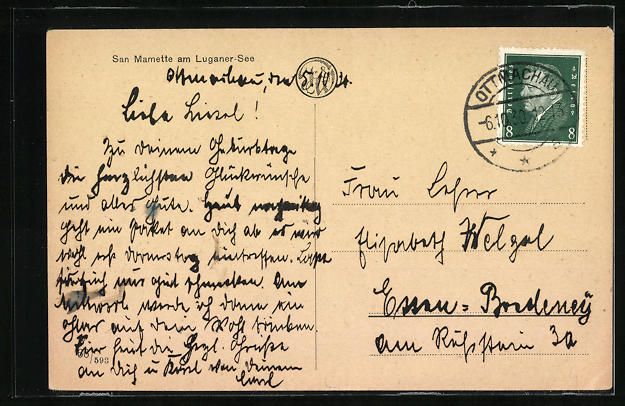 San Mamette am Luganer-See
Ottmachau, den 5/10 30.
Liebe Liesel!
Zu Deinem Geburtstage
die herzlichsten Glückwünsche
und alles Gute. Heut
geht ein Paket an Dich ab es wird
wohl erst Donnerstag eintreffen. Laßt
nur gut schmecken. Am
werde ich dann ein
auf Dein Wohl trinken.
Für heut die herzl. Grüße
an Dich u Karl von Deinem
Carl
593
OTTMACHAU
-6.10.30
Deutsches Reich
8 8
Frau Lehrer
Elisabeth Welzel
Essen-Bredeney
am Ruhrstein 3a